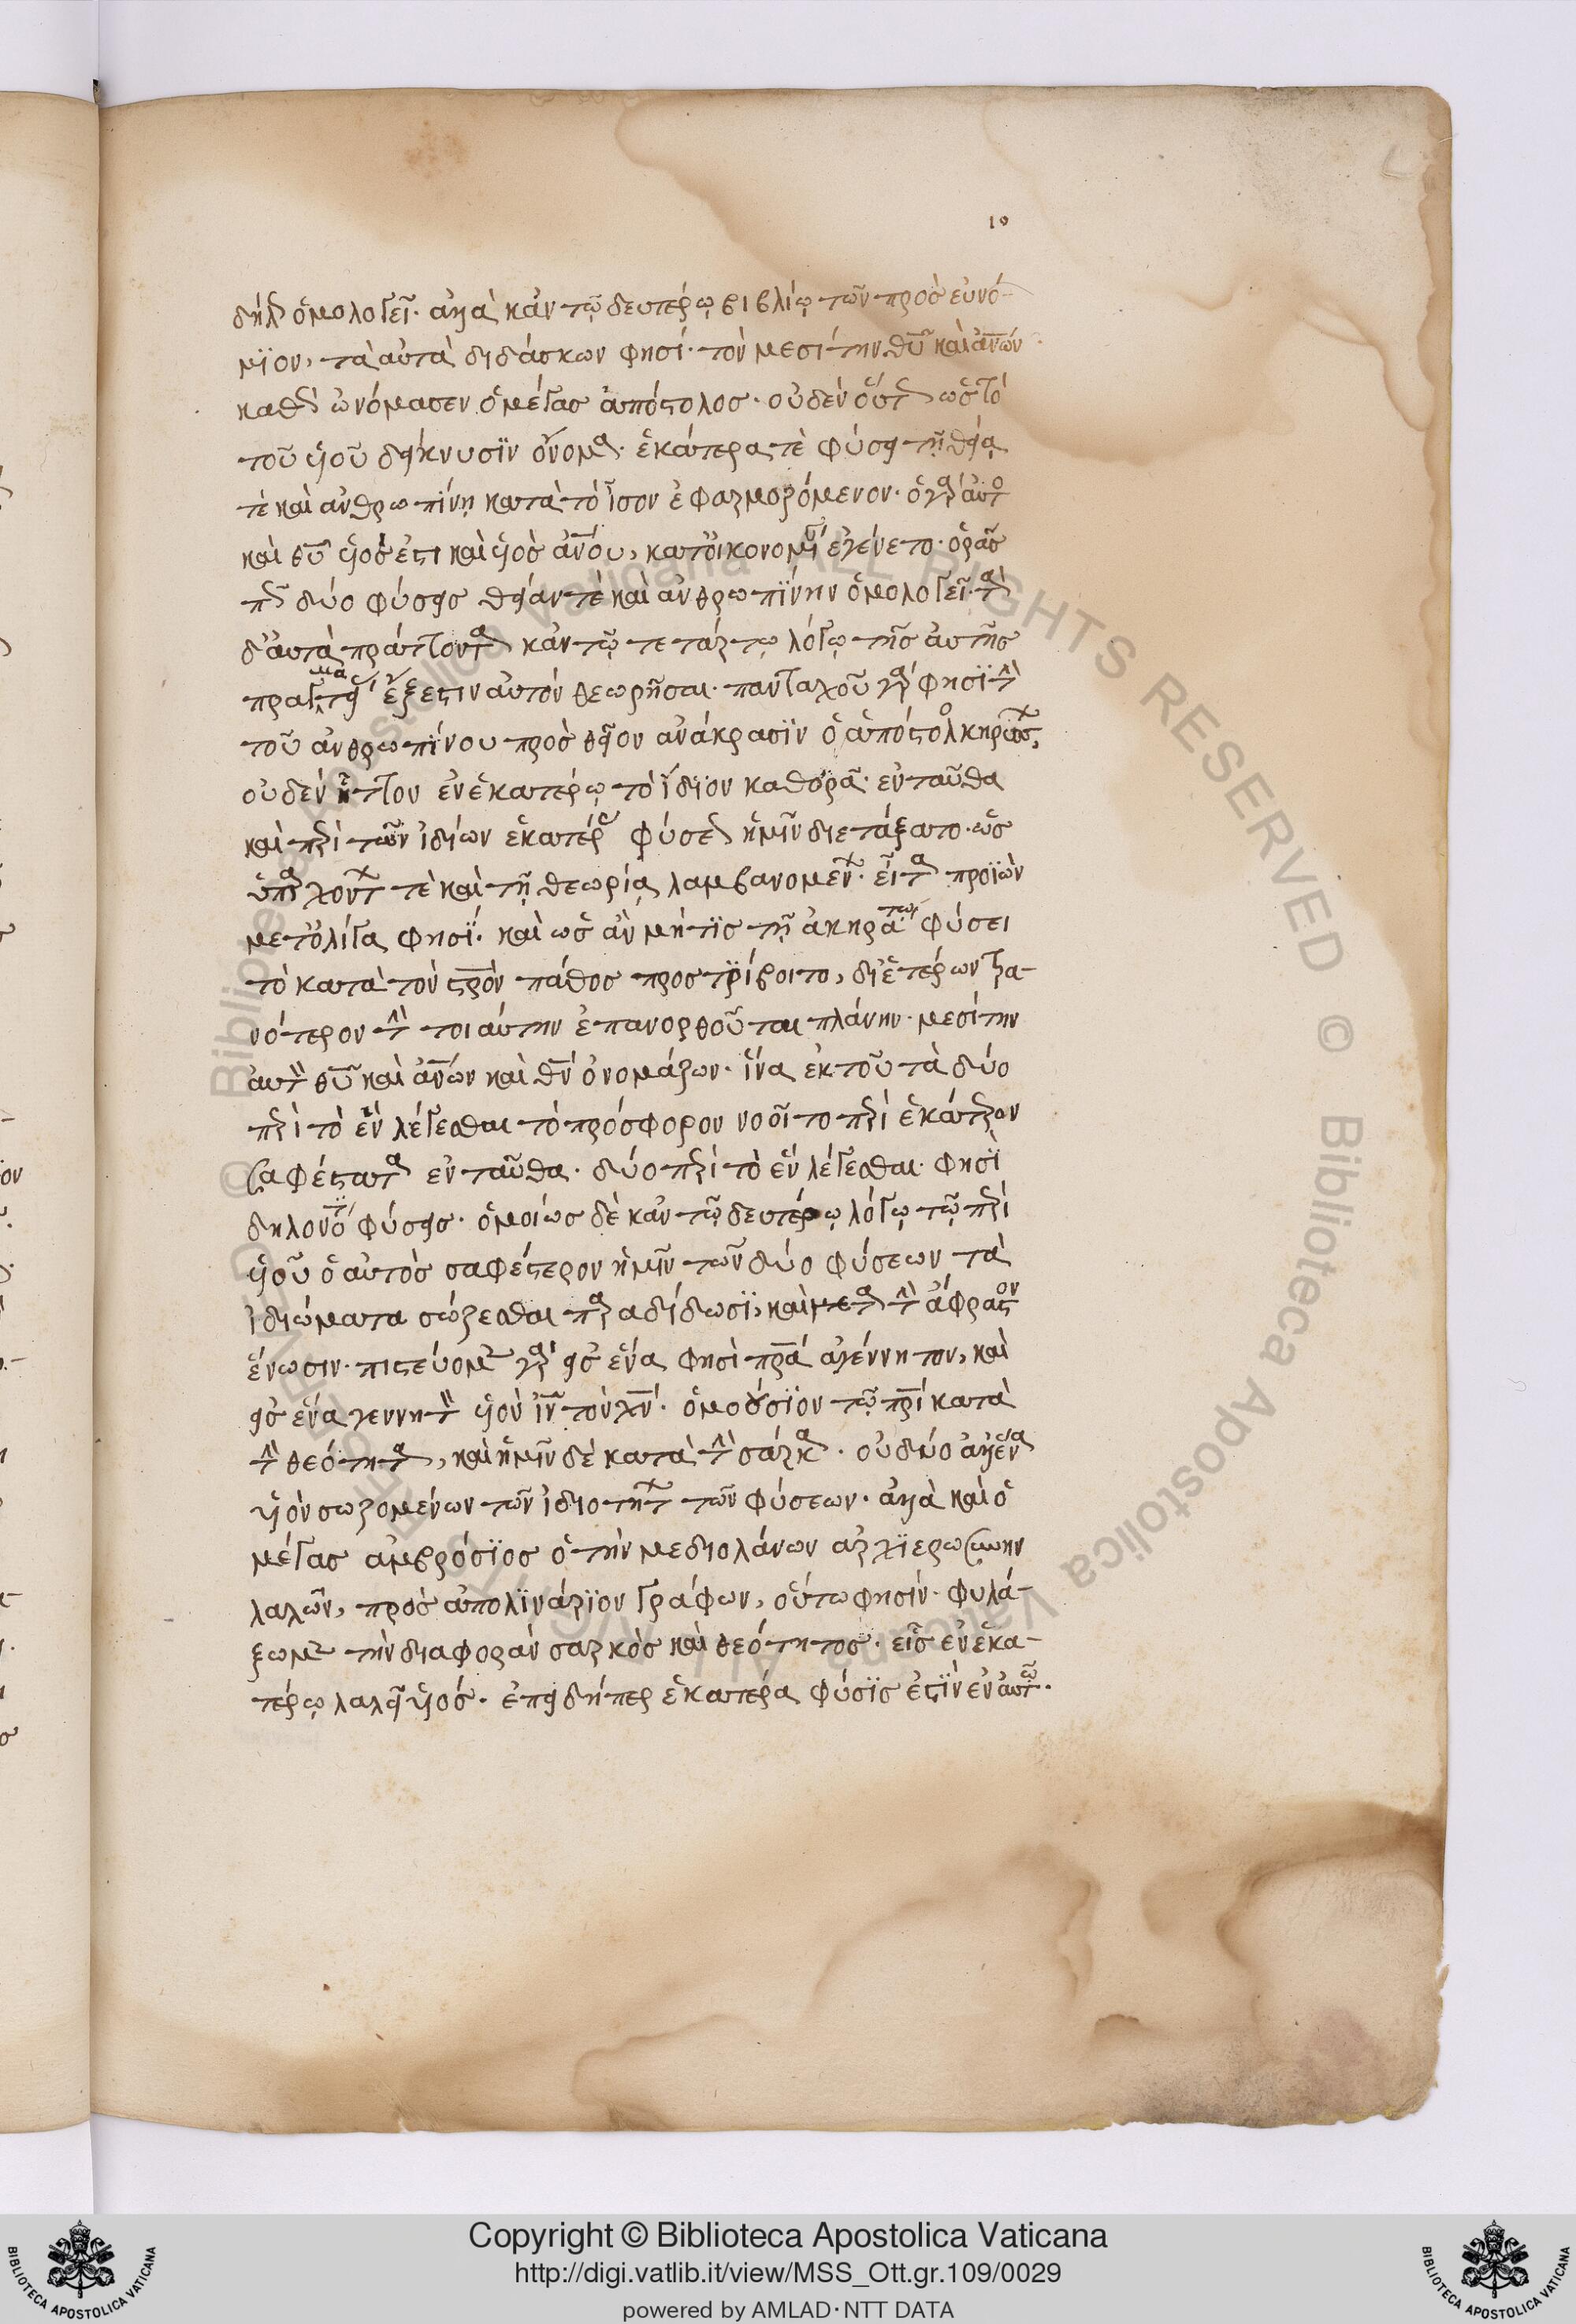 10
δῆλ ὁμολογεῖ· ἀλλὰ κἀν τῷ δευτέρῳ βιβλίῳ τῶν πρὸς εὐνό-
μϊον, τὰ αὐτὰ διδάσκων φησί· τὸν μεσίτην θ̅υ̅ καὶ α̅ν̅ω̅ν̅
καθ ὠνόμασεν ὁ μέγας ἀπόστολος· οὐδὲν οὕτ ὡς τὸ
τοῦ υἱοῦ δείκνυσϊν ὄνομα· ἑκάτερα τὲ φύσει τῇ θείᾳ
τὲ καὶ ἀνθρωπίνῃ κατὰ τὸ ἶσον ἐφαρμοζόμενον· ὁ γὰρ αὐτὸ
καὶ θ̅υ̅ υἱὸς ἐστι καὶ υἱὸς α̅ν̅ο̅υ̅, κατ οἰκονομί ἐγένετο· ὁρᾶς
π δύο φύσεις θείαν τὲ καὶ ἀνθρωπΐνην ὁμολογεῖ· τὰ
δ αὐτὰ πράττοντα κἀν τῷ τετάρτῳ λόγῳ τῆς αὐτῆς
πραγματεί ἔξεστιν αὐτὸν θεωρῆσαι· πανταχοῦ γάρ φησϊ τὴν
τοῦ ἀνθρωπΐνου πρὸς θεῖον ἀνάκρασϊν ὁ ἀπόστολ κηρύττων,
οὐδὲν ἧττον ἐν ἑκατέρῳ τὸ ἴδϊον καθορᾷ· ἐνταῦθα
καὶ περὶ τῶν ἰδίων ἑκατέρ φύσε ἡμῖν διετάξατο· ὡς
ὑπαρχόντων τὲ καὶ τῇ θεωρίᾳ λαμβανομένων· εἶτα προϊὼν
μετ ὀλίγα φησΐ· καὶ ὡς ἂν μήτϊς τῇ ἀκηράτῳ φύσει
τὸ κατὰ τὸν σ̅τ̅ρ̅ὸ̅ν̅ πάθος προστρίβοιτο, δι ἑτέρων τρα-
νότερον τὴν τοιαύτην ἐπανορθοῦται πλάνην· μεσίτην
αὐτὸν θ̅υ̅ καὶ α̅ν̅ω̅ν̅ καὶ θ̅ν̅ ὀνομάζων· ἵνα ἐκ τοῦ τὰ δύο
περὶ τὸ ἓν λέγεσθαι τὸ πρόσφορον νοοῖτο περὶ ἑκάτερον
σαφέστατα ἐνταῦθα· δύο περὶ τὸ ἓν λέγεσθαι φησὶ
δηλονότι φύσεις· ὁμοίως δὲ κἀν τῷ δευτέρῳ λόγῳ τῷ περὶ
υἱοῦ ὁ αὐτὸς σαφέστερον ἡμῖν τῶν δύο φύσεων τὰ
ἰδιώματα σώζεσθαι παραδίδωσϊ, καὶ μετὰ τὴν ἄφραστον
ἕνωσιν· πιστεύομεν γάρ εἰς ἕνα φησὶ π̅ρ̅α̅ ἀγέννητον, καὶ
εἰς ἕνα γεννητὸν υἱὸν ι̅ν̅ τὸν χ̅ν̅· ὁμοούσϊον τῷ π̅ρ̅ι̅ κατὰ
τὴν θεότητα, καὶ ἡμῖν δὲ κατὰ τὴν σάρκα· οὐ δύο ἀλλ ἕνα
υἱὸν σωζομένων τῶν ἰδιοτήτων τῶν φύσεων· ἀλλὰ καὶ ὁ
μέγας ἀμβρόσϊος ὁ τὴν μεδιολάνων ἀρχϊερωσύνην
λαλῶν, πρὸς ἀπολϊνάρϊον γράφων, οὕτω φησίν· φυλά-
ξωμεν τὴν διαφορὰν σαρκὸς καὶ θεότητος· εἷς ἐν ἑκα-
τέρῳ λαλεῖ υἱός· ἐπειδήπερ ἑκατέρα φύσϊς ἐστὶν ἐν αὐτῷ·
Copyright © Biblioteca Apostolica Vaticana
http://digi.vatlib.it/view/MSS_Ott.gr.109/0029
powered by AMLAD·NTT DATA
BIBLIOTECA APOSTOLICA VATICANA
BIBLIOTECA APOSTOLICA VATICANA
© Biblioteca Apostolica Vaticana ALL RIGHTS RESERVED © Biblioteca Apostolica Vaticana ALL RIGHTS RESERVED